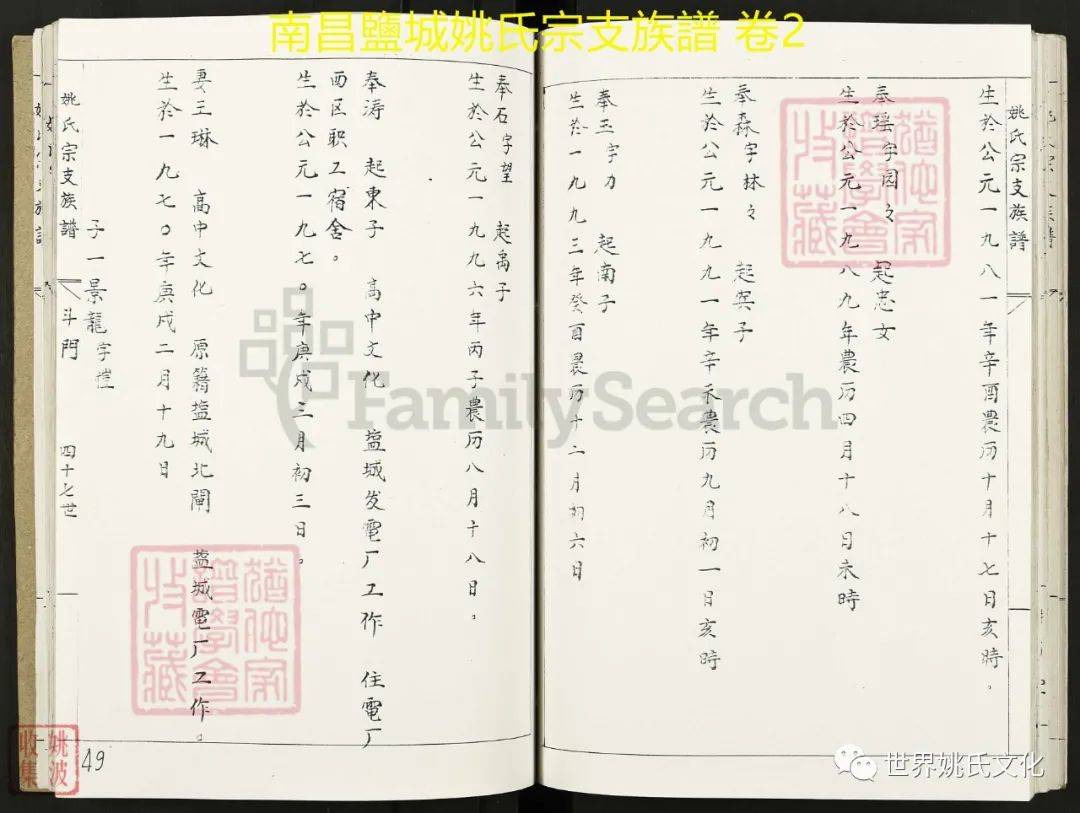 南昌鹽城姚氏宗支族譜 卷2
姚氏宗支族譜
生於公元一九八一年辛酉農历十月十七日亥時。
奉瑶字园々 起忠女
生於公元一九八九年農历四月十八日未時
奉森字林々 起寅子
生於公元一九九一年辛未農历九月初一日亥時
奉玉字力 起南子
生於一九九三年癸酉農历十二月初六日
奉石字望 起禹子
生於公元一九九六年丙子農历八月十八日。
奉涛 起東子 高中文化 盐城发電厂工作 住電厂
西区职工宿舍。
生於公元一九七〇年庚戍三月初三日。
妻王琳 高中文化 原籍盐城北閘 盐城電厂工作。
生於一九七〇年庚戍二月十九日
子一景龍字
姚氏宗支族譜 斗門 四十七世
49
FamilySearch
收藏
譜學會
收藏
譜學會
姚波
收集
世界姚氏文化